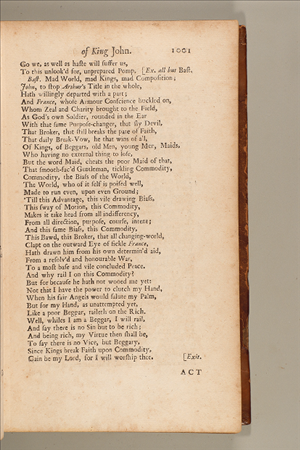 of King John. 1001
Go we, as well as haste will suffer us,
To this unlook'd for, unprepared Pomp. [Ex. all but Bast.
Bast. Mad World, mad Kings, mad Composition;
John, to stop Arthur's Title in the whole,
Hath willingly departed with a part;
And France, whose Armour Conscience buckled on,
Whom Zeal and Charity brought to the Field,
As God's own Soldier, rounded in the Ear
With that same Purpose-changer, that sly Devil,
That Broker, that still breaks the pate of Faith,
That daily Break-Vow, he that wins of all,
Of Kings, of Beggars, old Men, young Men, Maids,
Who having no external thing to lose,
But the word Maid, cheats the poor Maid of that,
That smooth-fac'd Gentleman, tickling Commodity,
Commodity, the Biass of the World,
The World, who of it self is poised well,
Made to run even, upon even Ground;
'Till this Advantage, this vile drawing Biass,
This sway of Motion, this Commodity,
Makes it take head from all indifferency,
From all direction, purpose, course, intent;
And this same Biass, this Commodity,
This Bawd, this Broker, that all-changing-world,
Clapt on the outward Eye of fickle France,
Hath drawn him from his own determin'd aid,
From a resolv'd and honourable War,
To a most base and vile concluded Peace.
And why rail I on this Commodity?
But for because he hath not wooed me yet:
Not that I have the power to clutch my Hand,
When his fair Angels would salute my Palm,
But for my Hand, as unattempted yet,
Like a poor Beggar, raileth on the Rich.
Well, whiles I am a Beggar, I will rail,
And say there is no Sin but to be rich;
And being rich, my Virtue then shall be,
To say there is no Vice, but Beggary.
Since Kings break Faith upon Commodity,
Gain be my Lord, for I will worship thee. [Exit.
ACT